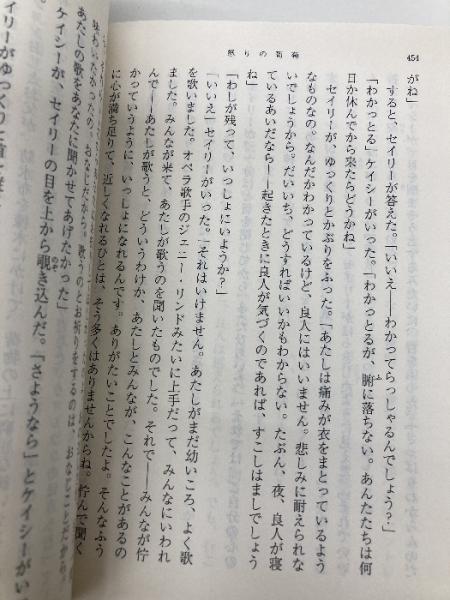 怒りの葡萄
454
がね」
すると、セイリーが答えた。「いいえ――わかってらっしゃるんでしょう？」
「わかっとる」ケイシーがいった。「わかっとるが、腑に落ちない。あんたたちは何
日か休んでから来たらどうかね」
セイリーが、ゆっくりとかぶりをふった。「あたしは痛みが衣をまとっているよう
なものなの。なんだかわかっているけど、良人にはいいません。悲しみに耐えられな
いでしょうから。だいいち、どうすればいいかもわからない。たぶん、夜、良人が寝
ているあいだなら――起きたときに良人が気づくのであれば、すこしはましでしょう
ね」
「わしが残って、いっしょにいようか？」
「いいえ」セイリーがいった。「それはいけません。あたしがまだ幼いころ、よく歌
を歌いました。オペラ歌手のジェニー・リンドみたいに上手だって、みんなにいわれ
ました。みんなが来て、あたしが歌うのを聞いたものでした。それで――みんなが佇
んで――あたしが歌うと、どういうわけか、あたしとみんなが、こんなことがあるの
っていうように、いっしょになれるんです。ありがたいことでしたよ。そんなふう
に心が満ち足りて、近しくなれるひとは、そう多くはありませんからね。佇んで聞く
歌うのとお祈りをするのは、おなじことだから。
あたしの歌をあなたに聞かせてあげたかった」
ケイシーが、セイリーの目を上から覗き込んだ。「さようなら」とケイシーがい
セイリーがゆっくりと首を